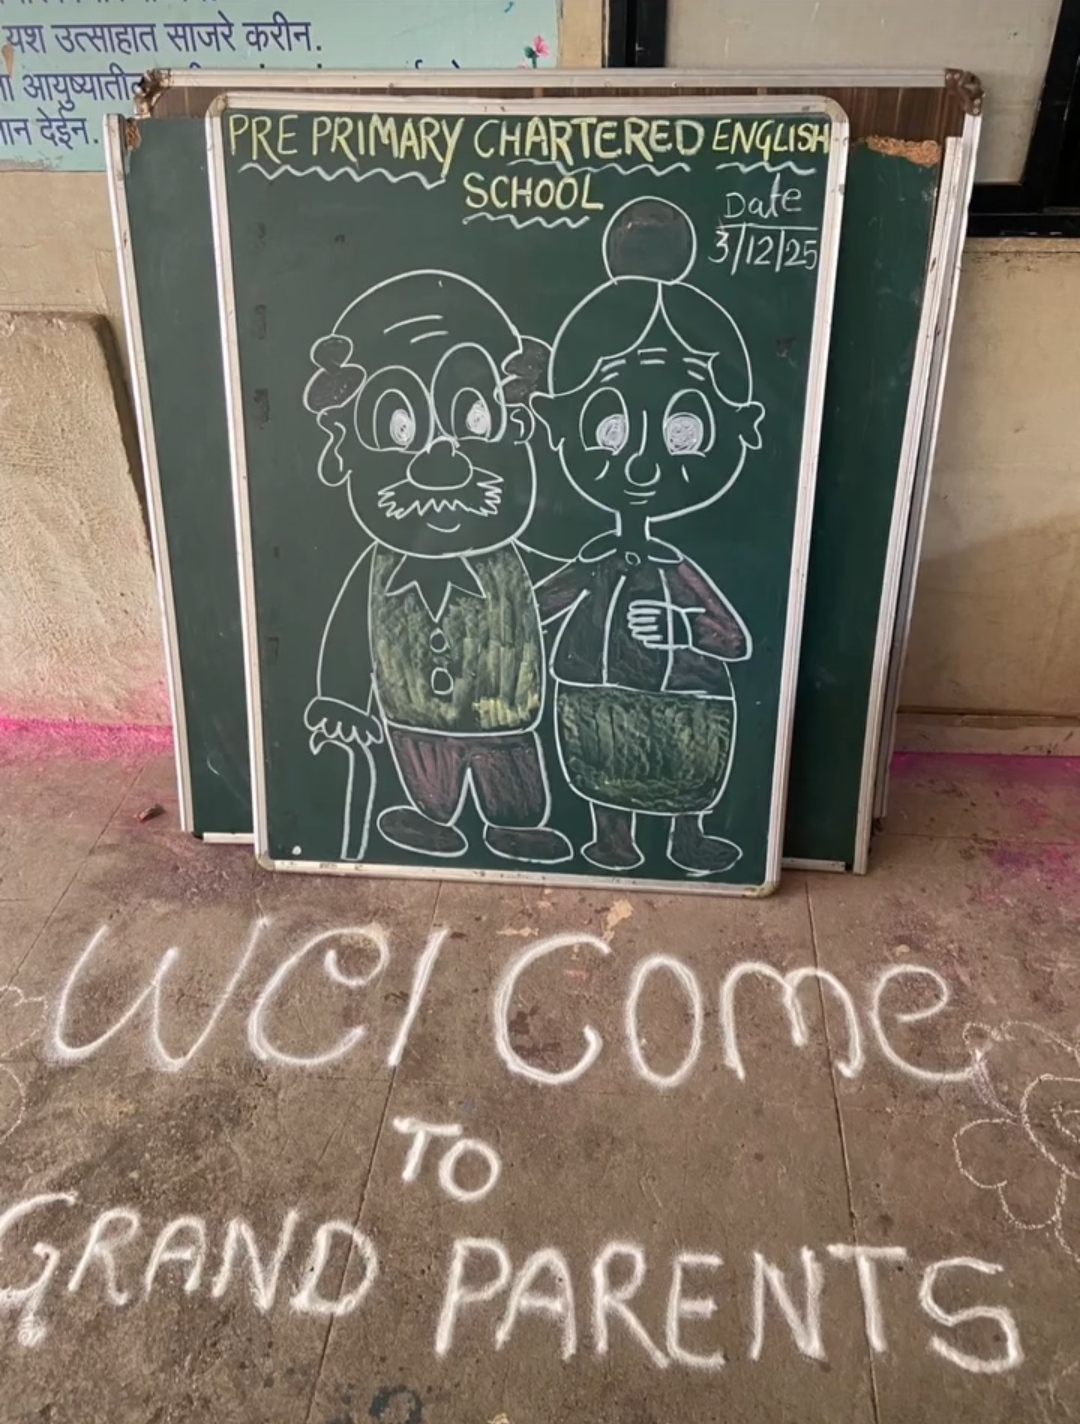 यश उत्साहात साजरे करीन.
आयुष्यातील
देईन.
PRE PRIMARY CHARTERED ENGLISH
SCHOOL
Date
3/12/25
WElCome
TO
GRAND PARENTS